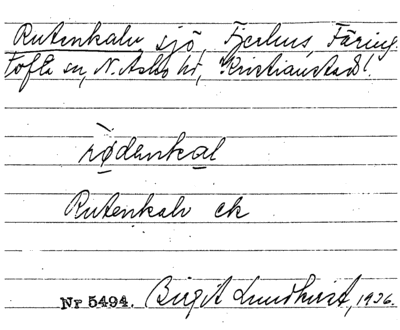 Rutenkalv sjö, Fjerhus, Färing-
tofta sn, N. Åsbo hd, Kristianstads l.
rødenkal
Rutenkalv ek
Nr 5494. Birgit Lundkvist, 1926.